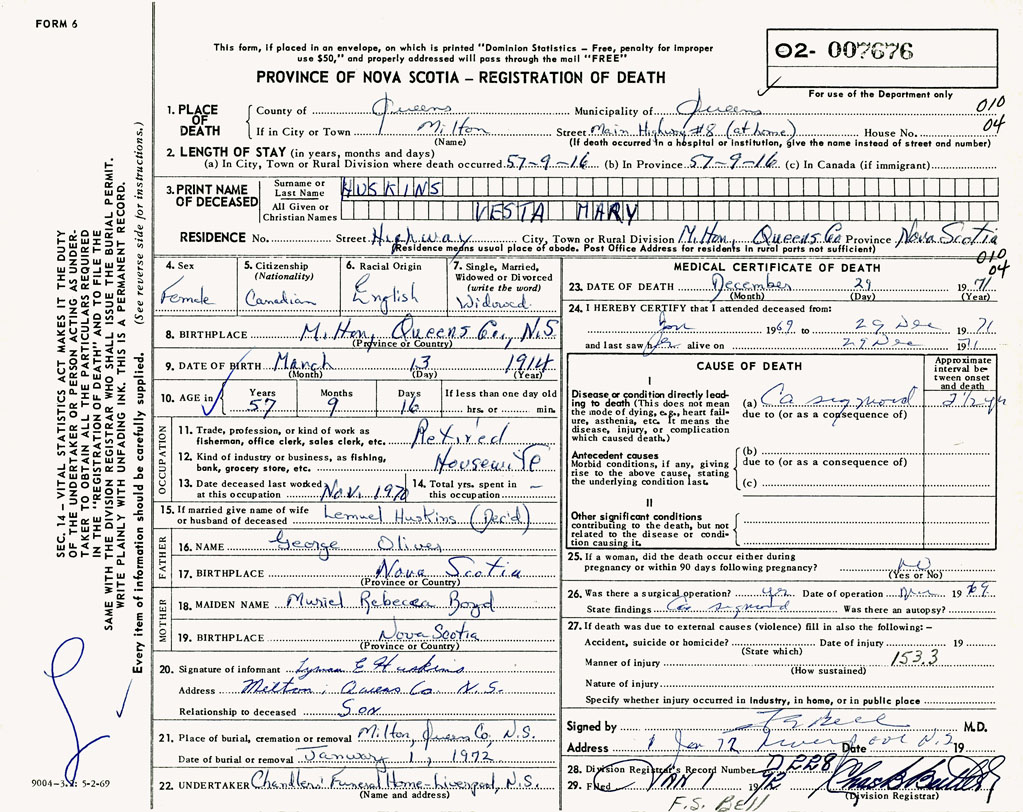 FORM 6
This form, if placed in an envelope, on which is printed "Dominion Statistics – Free, penalty for improper
use $50," and properly addressed will pass through the mail "FREE"
PROVINCE OF NOVA SCOTIA – REGISTRATION OF DEATH
02- 007676
For use of the Department only
010
04
1. PLACE OF DEATH
County of Queens Municipality of Queens
If in City or Town Milton Street Main Highway #8 (at home) House No.
(Name) (If death occurred in a hospital or institution, give the name instead of street and number)
2. LENGTH OF STAY (in years, months and days)
(a) In City, Town or Rural Division where death occurred 57-9-16 (b) In Province 57-9-16 (c) In Canada (if immigrant)
3. PRINT NAME OF DECEASED
Surname or Last Name HUSKINS
All Given or Christian Names VESTA MARY
RESIDENCE No. Street Highway City, Town or Rural Division Milton, Queens Co Province Nova Scotia
(Residence means usual place of abode. Post Office Address for residents in rural parts not sufficient)
010
04
4. Sex Female
5. Citizenship (Nationality) Canadian
6. Racial Origin English
7. Single, Married, Widowed or Divorced (write the word) Widowed
8. BIRTHPLACE Milton, Queens Co, N.S.
(Province or Country)
9. DATE OF BIRTH March 13 1914
(Month) (Day) (Year)
10. AGE in Years 57 Months 9 Days 16 If less than one day hrs. or min.
OCCUPATION
11. Trade, profession, or kind of work as fisherman, office clerk, sales clerk, etc. Retired
12. Kind of industry or business, as fishing, bank, grocery store, etc. Housewife
13. Date deceased last worked at this occupation Nov. 1970 14. Total yrs. spent in this occupation –
15. If married give name of wife or husband of deceased Lemuel Huskins (Dec'd)
FATHER
16. NAME George Oliver
17. BIRTHPLACE Nova Scotia
(Province or Country)
MOTHER
18. MAIDEN NAME Muriel Rebecca Boyd
19. BIRTHPLACE Nova Scotia
(Province or Country)
20. Signature of informant Lyman E Huskins
Address Milton, Queens Co N.S.
Relationship to deceased Son
21. Place of burial, cremation or removal Milton, Queens Co, N.S.
Date of burial or removal January 1, 1972
22. UNDERTAKER Chandlers' Funeral Home-Liverpool, N.S.
(Name and address)
MEDICAL CERTIFICATE OF DEATH
23. DATE OF DEATH December 29 1971
(Month) (Day) (Year)
24. I HEREBY CERTIFY that I attended deceased from:
Jan 1969 to 29 Dec 1971
and last saw her alive on 29 Dec 1971
CAUSE OF DEATH
Approximate interval between onset and death
I
Disease or condition directly leading to death (This does not mean the mode of dying, e.g., heart failure, asthenia, etc. It means the disease, injury, or complication which caused death.)
(a) Ca sigmoid 2 1/2 yr
due to (or as a consequence of)
Antecedent causes
Morbid conditions, if any, giving rise to the above cause, stating the underlying condition last.
(b)
due to (or as a consequence of)
(c)
II
Other significant conditions
contributing to the death, but not related to the disease or condition causing it.
25. If a woman, did the death occur either during
pregnancy or within 90 days following pregnancy? no
(Yes or No)
26. Was there a surgical operation? yes Date of operation 1969
State findings Ca sigmoid Was there an autopsy?
27. If death was due to external causes (violence) fill in also the following: –
Accident, suicide or homicide? Date of injury 19
(State which)
Manner of injury 153.3
(How sustained)
Nature of injury
Specify whether injury occurred in Industry, in home, or in public place
Signed by F S Bell M.D.
Address 1 Jan 72 Liverpool N.S Date 19
28. Division Registrar's Record Number D228
29. Filed Jan 1 1972
(Division Registrar)
F.S. BELL
SEC. 14 – VITAL STATISTICS ACT MAKES IT THE DUTY
OF THE UNDERTAKER OR PERSON ACTING AS UNDER-
TAKER TO OBTAIN ALL THE PARTICULARS REQUIRED
IN THE "REGISTRATION OF DEATH" AND TO FILE THE
SAME WITH THE DIVISION REGISTRAR WHO SHALL ISSUE THE BURIAL PERMIT.
WRITE PLAINLY WITH UNFADING INK. THIS IS A PERMANENT RECORD.
Every item of information should be carefully supplied. (See reverse side for instructions.)